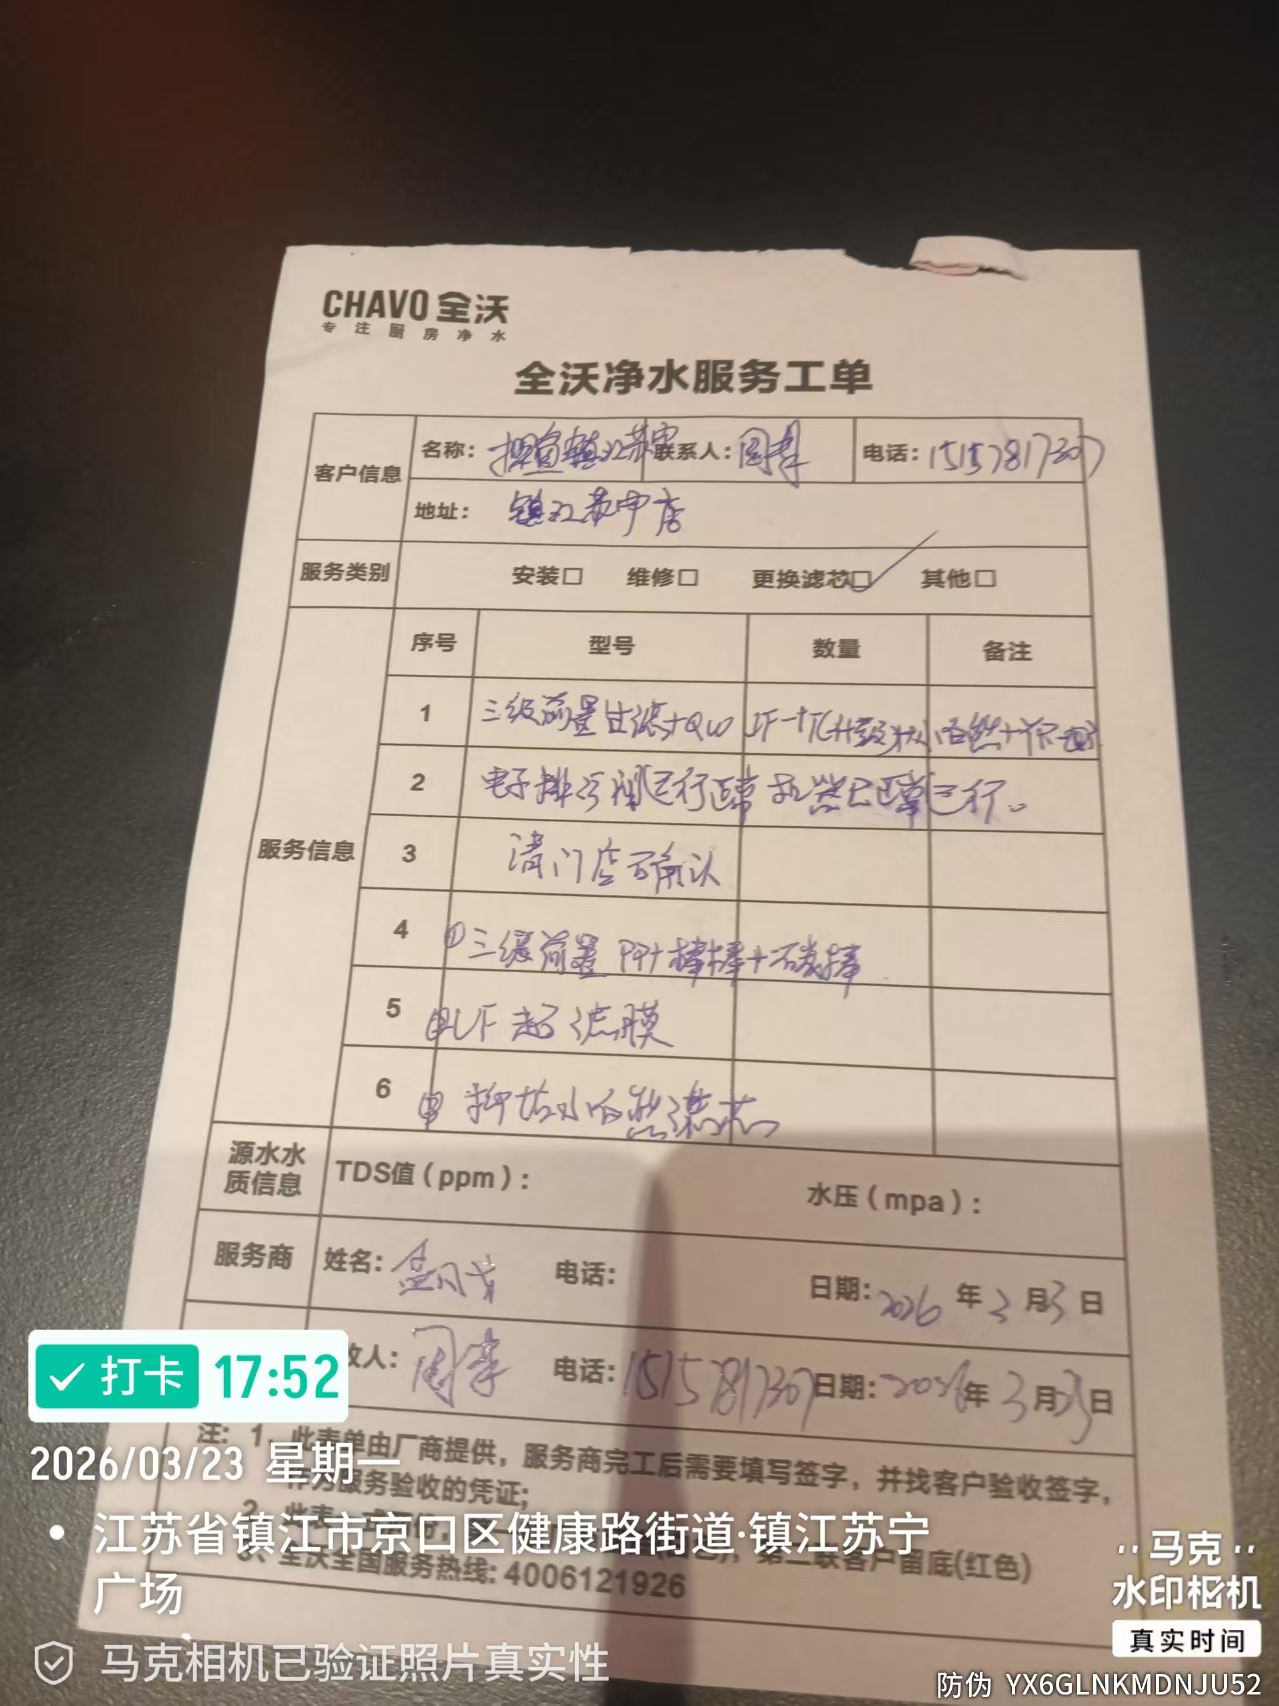 CHAVO 全沃
专注厨房净水
全沃净水服务工单
客户信息 名称: 联系人: 周 电话: 15157817307
地址: 镇江苏宁店
服务类别 安装□ 维修□ 更换滤芯☑ 其他□
服务信息 序号 型号 数量 备注
1 三级前置过滤+QW
2 电子排污阀运行正常 机器已正常运行。
3 请门店确认
4 ①三级前置 PP+ 棒+ 碳棒
5 UF 超滤膜
6 抑垢 滤芯
源水水质信息 TDS值(ppm): 水压(mpa):
服务商 姓名: 电话: 日期: 2026 年 3 月 日
收人: 周 电话: 15157817307 日期: 2026 年 3 月 23 日
注: 1、此表单由厂商提供，服务商完工后需要填写签字，并找客户验收签字，
作为服务验收的凭证;
2、此表 第二联客户留底(红色)
3、全沃全国服务热线: 4006121926
打卡 17:52
2026/03/23 星期一
江苏省镇江市京口区健康路街道·镇江苏宁
广场
马克相机已验证照片真实性
马克
水印相机
真实时间
防伪 YX6GLNKMDNJU52